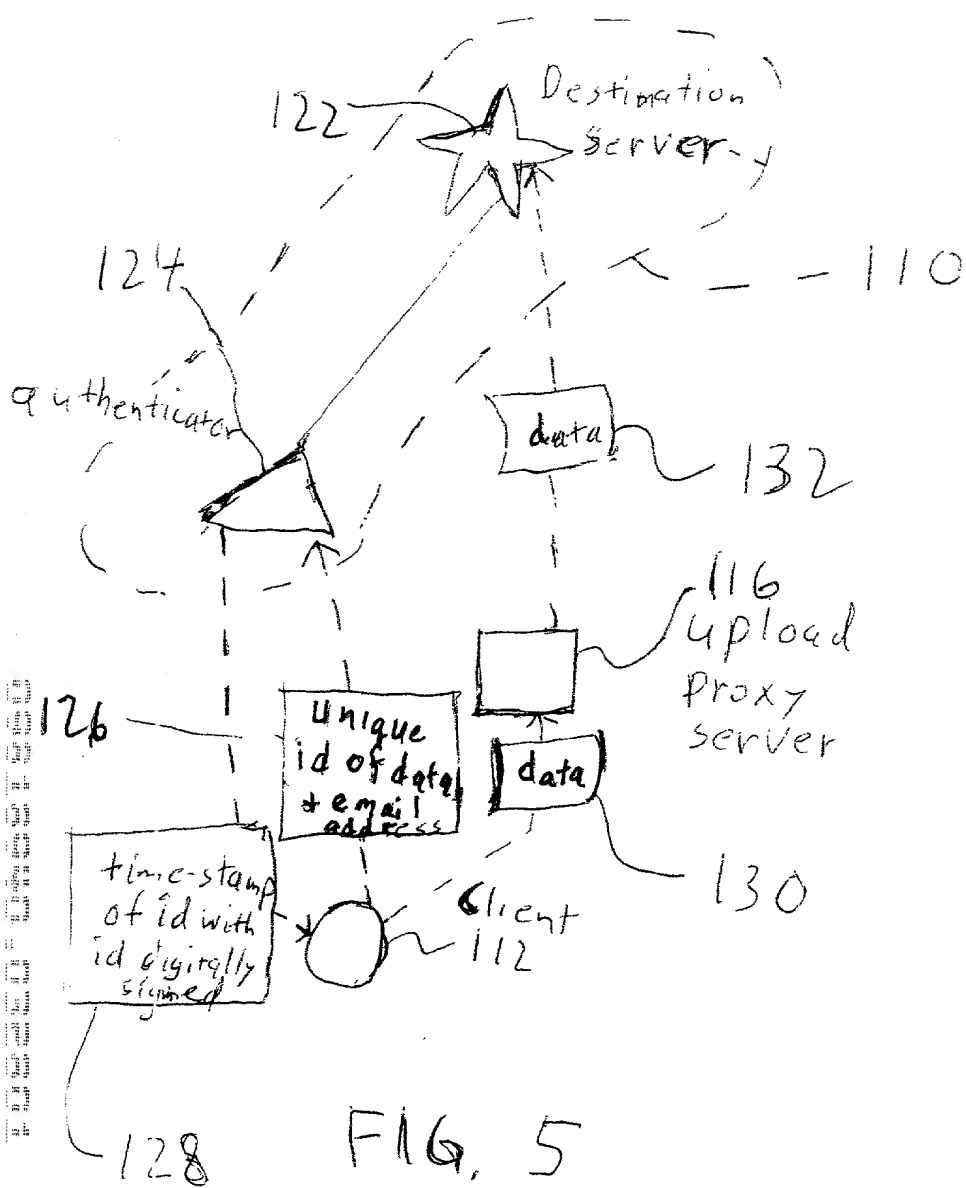 122
Destination
server
124
110
authenticator
data
132
116
upload
proxy
server
126
unique
id of data
+ email
address
data
130
time-stamp
of id with
id digitally
signed
Client
112
128
FIG. 5